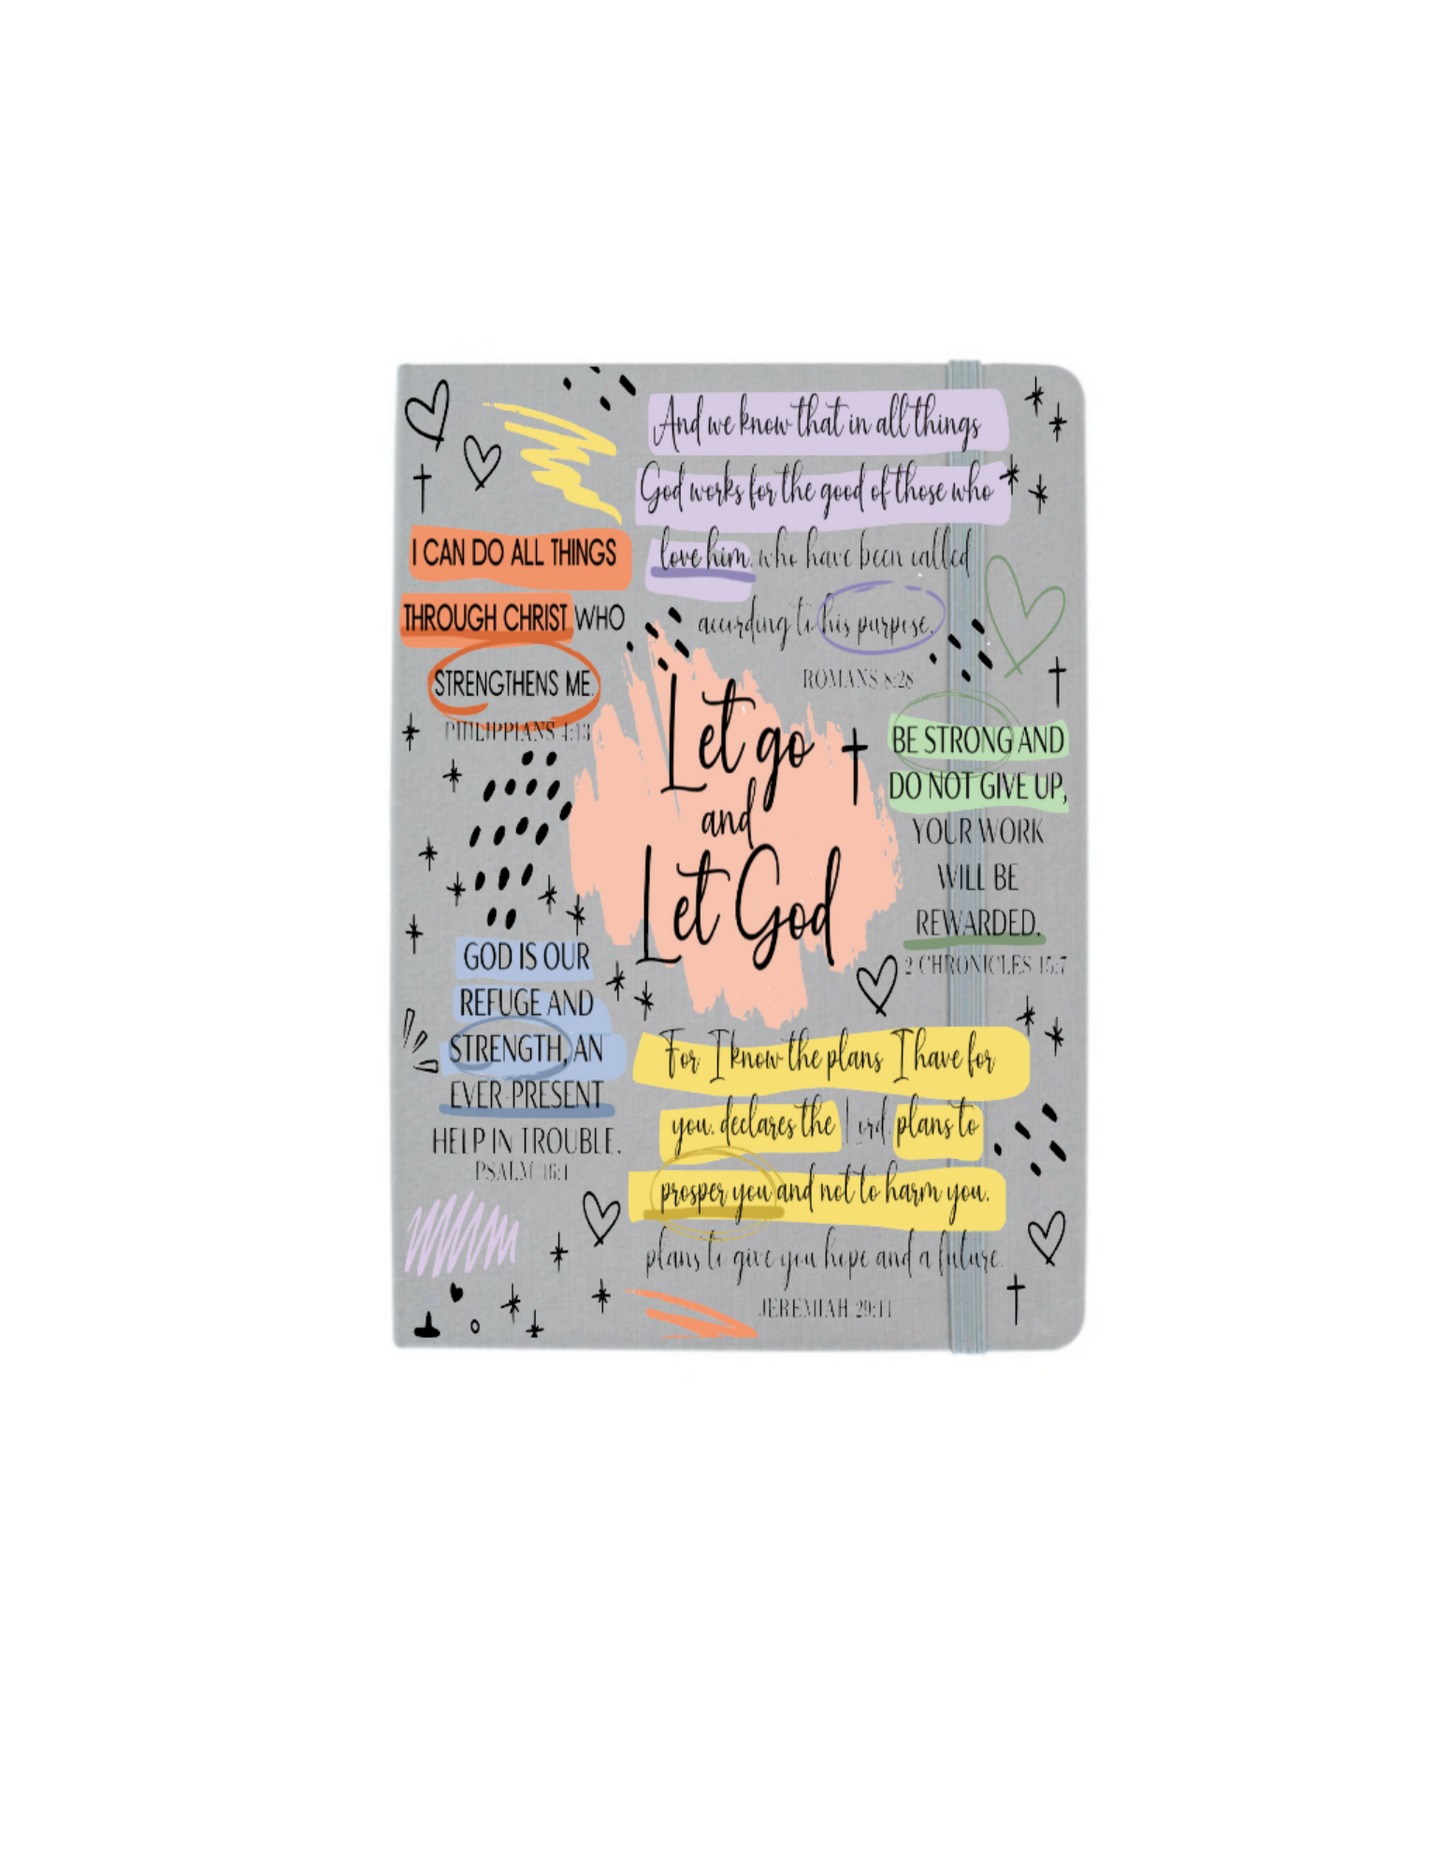 And we know that in all things
God works for the good of those who
love him, who have been called
according to his purpose.
ROMANS 8:28
I CAN DO ALL THINGS
THROUGH CHRIST WHO
STRENGTHENS ME.
PHILIPPIANS 4:13
Let go
and
Let God
BE STRONG AND
DO NOT GIVE UP,
YOUR WORK
WILL BE
REWARDED.
2 CHRONICLES 15:7
GOD IS OUR
REFUGE AND
STRENGTH, AN
EVER-PRESENT
HELP IN TROUBLE.
PSALM 46:1
For I know the plans I have for
you, declares the Lord, plans to
prosper you and not to harm you,
plans to give you hope and a future.
JEREMIAH 29:11